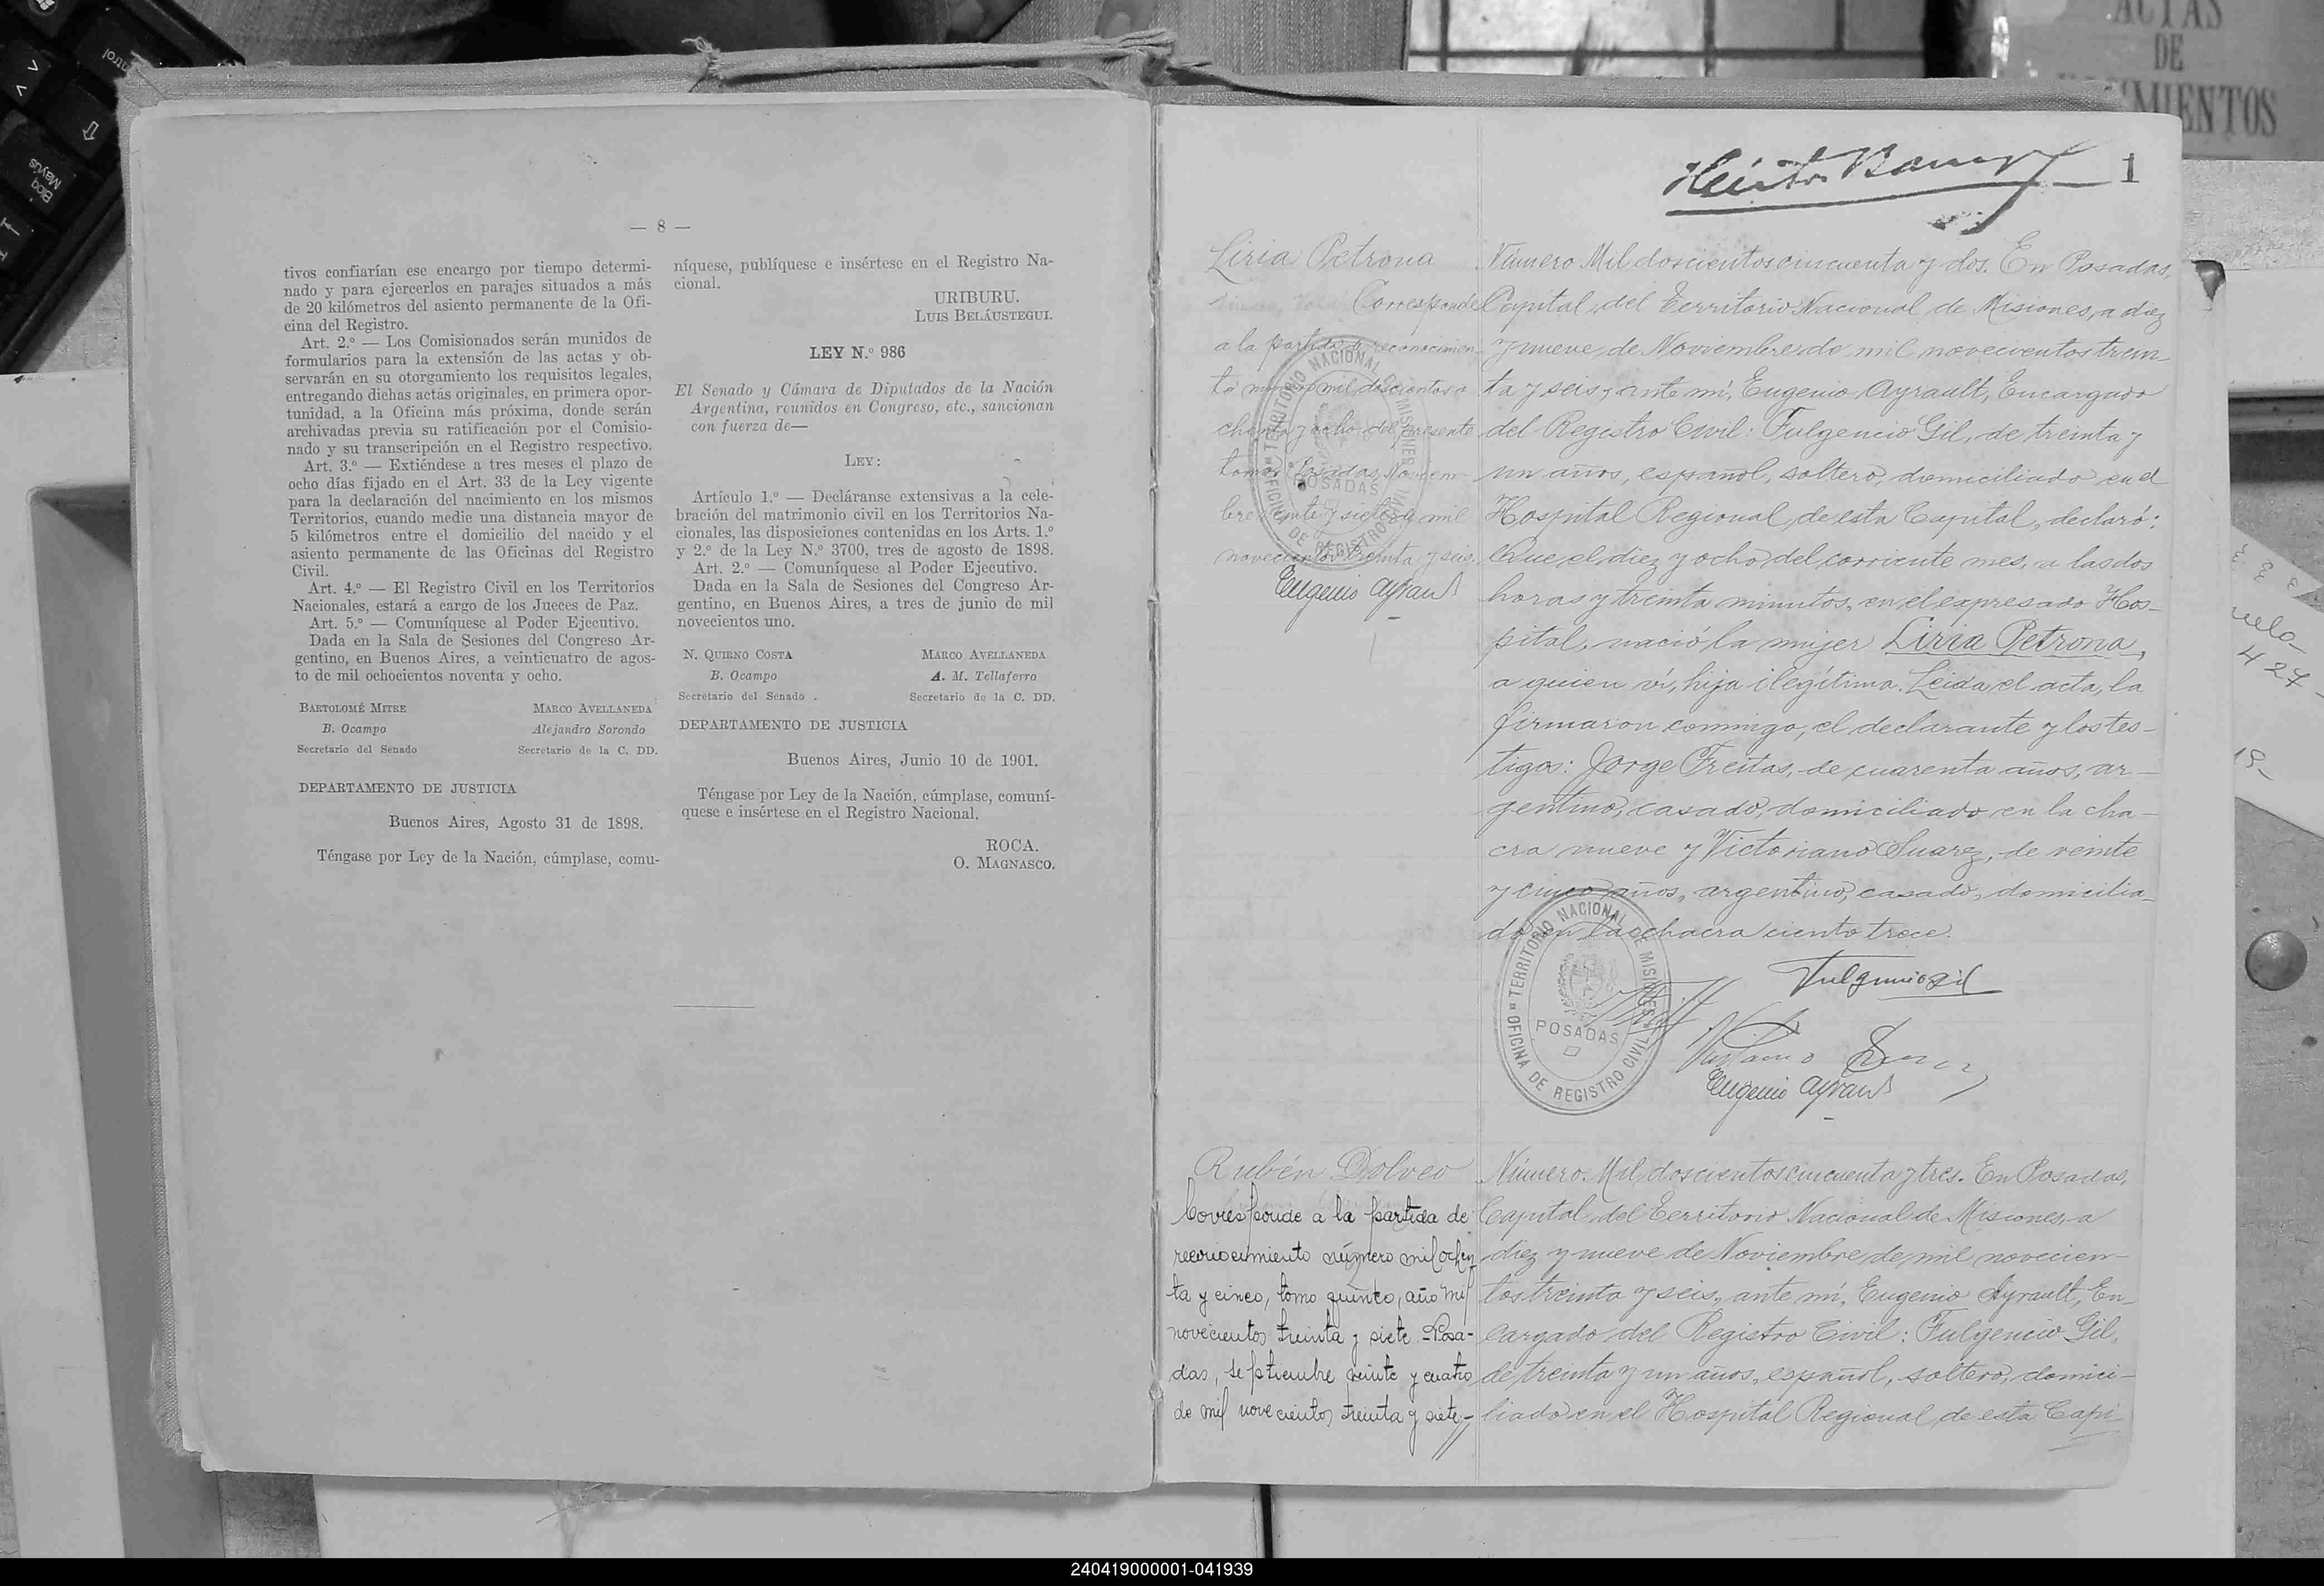 ACTAS
DE
MIENTOS
Control
Bloq
Mayús
— 8 —
tivos confiarían ese encargo por tiempo determi-
nado y para ejercerlos en parajes situados a más
de 20 kilómetros del asiento permanente de la Ofi-
cina del Registro.
Art. 2.º — Los Comisionados serán munidos de
formularios para la extensión de las actas y ob-
servarán en su otorgamiento los requisitos legales,
entregando dichas actas originales, en primera opor-
tunidad, a la Oficina más próxima, donde serán
archivadas previa su ratificación por el Comisio-
nado y su transcripción en el Registro respectivo.
Art. 3.º — Extiéndese a tres meses el plazo de
ocho días fijado en el Art. 33 de la Ley vigente
para la declaración del nacimiento en los mismos
Territorios, cuando medie una distancia mayor de
5 kilómetros entre el domicilio del nacido y el
asiento permanente de las Oficinas del Registro
Civil.
Art. 4.º — El Registro Civil en los Territorios
Nacionales, estará a cargo de los Jueces de Paz.
Art. 5.º — Comuníquese al Poder Ejecutivo.
Dada en la Sala de Sesiones del Congreso Ar-
gentino, en Buenos Aires, a veinticuatro de agos-
to de mil ochocientos noventa y ocho.
BARTOLOMÉ MITRE MARCO AVELLANEDA
B. Ocampo Alejandro Sorondo
Secretario del Senado Secretario de la C. DD.
DEPARTAMENTO DE JUSTICIA
Buenos Aires, Agosto 31 de 1898.
Téngase por Ley de la Nación, cúmplase, comu-
níquese, publíquese e insértese en el Registro Na-
cional.
URIBURU.
LUIS BELÁUSTEGUI.
LEY N.º 986
El Senado y Cámara de Diputados de la Nación
Argentina, reunidos en Congreso, etc., sancionan
con fuerza de—
LEY:
Artículo 1.º — Decláranse extensivas a la cele-
bración del matrimonio civil en los Territorios Na-
cionales, las disposiciones contenidas en los Arts. 1.º
y 2.º de la Ley N.º 3700, tres de agosto de 1898.
Art. 2.º — Comuníquese al Poder Ejecutivo.
Dada en la Sala de Sesiones del Congreso Ar-
gentino, en Buenos Aires, a tres de junio de mil
novecientos uno.
N. QUIRNO COSTA MARCO AVELLANEDA
B. Ocampo A. M. Tellaferro
Secretario del Senado Secretario de la C. DD.
DEPARTAMENTO DE JUSTICIA
Buenos Aires, Junio 10 de 1901.
Téngase por Ley de la Nación, cúmplase, comuní-
quese e insértese en el Registro Nacional.
ROCA.
O. MAGNASCO.
1
Liria Petrona
Corresponde
a la partida de reconocimien
to número mil doscientos o
chenta y ocho del presente
tomo. Posadas, Noviem-
bre veinte y siete de mil
novecientos treinta y seis.
Eugenio Ayrault
TERRITORIO NACIONAL DE MISIONES
POSADAS
OFICINA DE REGISTRO CIVIL
Número Mil doscientos cincuenta y dos. En Posadas,
Capital del Territorio Nacional de Misiones, a diez
y nueve de Noviembre de mil novecientos trein-
ta y seis, ante mí, Eugenio Ayrault, Encargado
del Registro Civil: Fulgencio Gil, de treinta y
un años, español, soltero, domiciliado en el
Hospital Regional de esta Capital, declaró:
Que el diez y ocho del corriente mes, a las dos
horas y treinta minutos, en el expresado Hos-
pital, nació la mujer Liria Petrona,
a quien ví, hija ilegítima. Leida el acta, la
firmaron conmigo, el declarante y los tes-
tigos: Jorge Freitas, de cuarenta años, ar-
gentino, casado, domiciliado en la cha-
cra nueve y Victoriano Suarez, de veinte
y cinco años, argentino, casado, domicilia-
do en la chacra ciento trece.
Fulgencio Gil
Eugenio Ayrault
TERRITORIO NACIONAL DE MISIONES
POSADAS
OFICINA DE REGISTRO CIVIL
Rubén Dolveo
Corresponde a la partida de
reconocimiento número mil ochen
ta y cinco, tomo quinto, año mil
novecientos treinta y siete. Posa-
das, septiembre veinte y cuatro
de mil novecientos treinta y siete-
Número Mil doscientos cincuenta y tres. En Posadas,
Capital del Territorio Nacional de Misiones, a
diez y nueve de Noviembre de mil novecien-
tos treinta y seis, ante mí, Eugenio Ayrault, En-
cargado del Registro Civil: Fulgencio Gil,
de treinta y un años, español, soltero, domici-
liado en el Hospital Regional de esta Capi
427
240419000001-041939